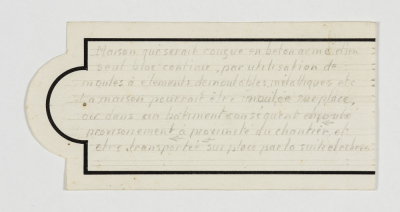 Maison qui serait conçue en béton armé d'un
seul bloc continu, par utilisation de
moules à éléments démontables, métalliques etc
La maison pourrait être moulée sur place,
ou dans un bâtiment conséquent
provisoirement à proximité du chantier et
être transportée sur place par la suite